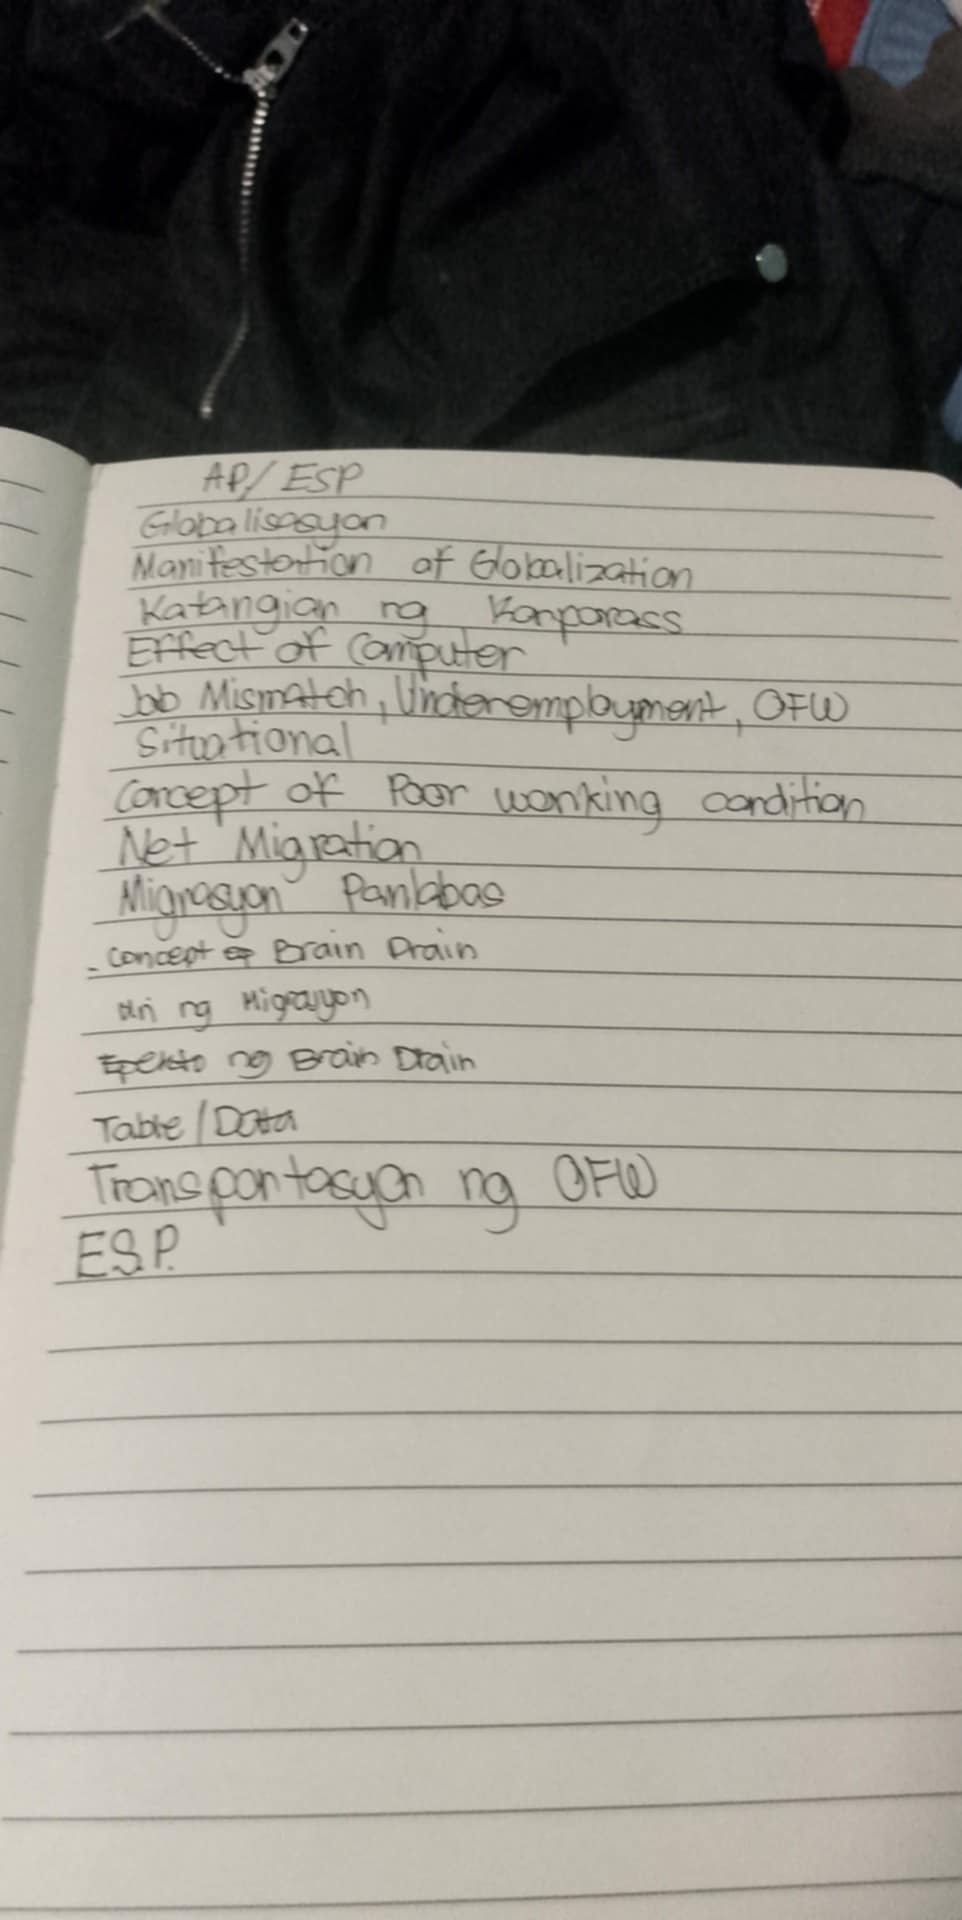 AP/ ESP
Globalisasyon
Manifestation of Globalization
Katangian ng Konporass
Effect of Computer
Job Mismatch, Underemployment, OFW
Situational
Concept of Poor wonking condition
Net Migration
Migrasyon Panlabas
- Concept of Brain Drain
Uri ng Migrasyon
Epekto ng Brain Drain
Table / Data
Transportasyon ng OFW
E.S.P.